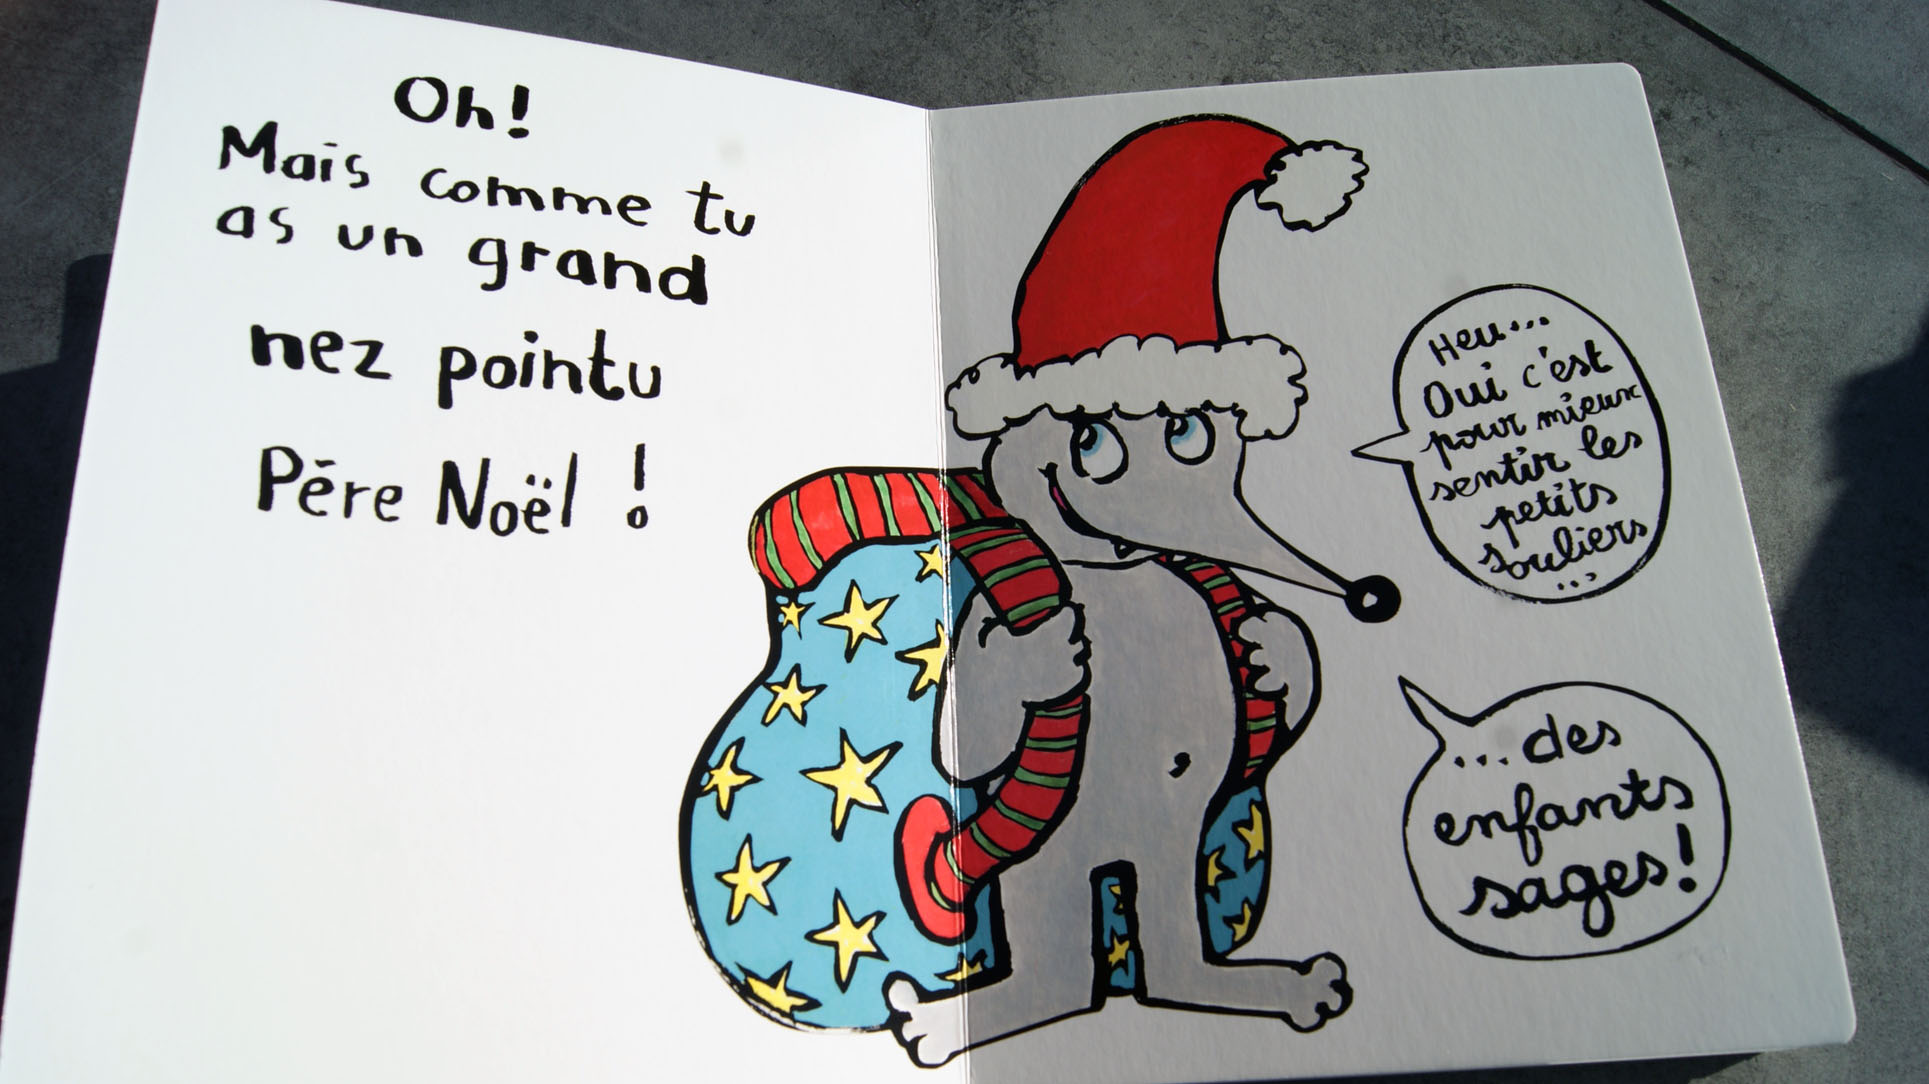 Oh!
Mais comme tu
as un grand
nez pointu
Père Noël !
Heu...
Oui c'est
pour mieux
sentir les
petits
souliers
...
...des
enfants
sages!